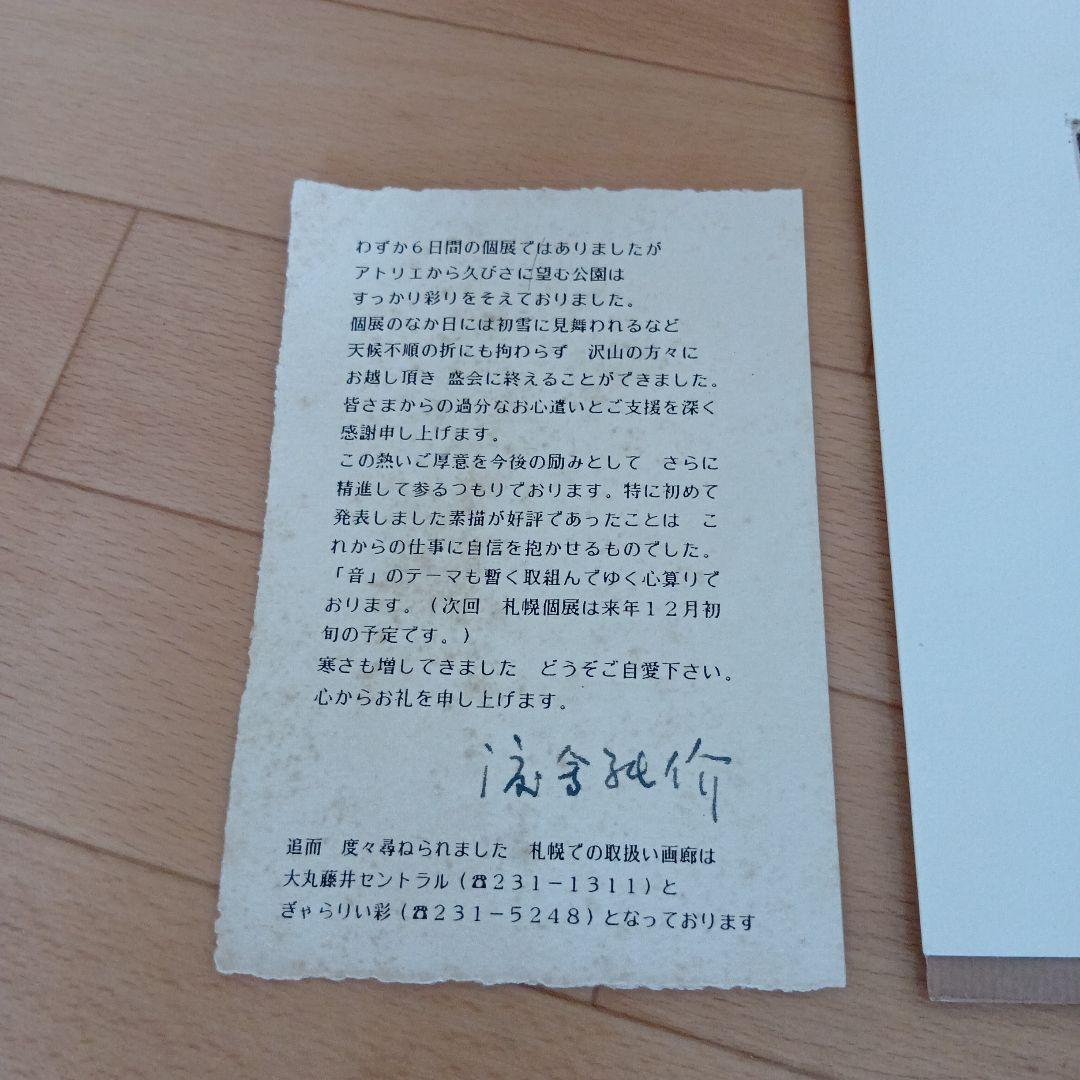 わずか6日間の個展ではありましたが
アトリエから久びさに望む公園は
すっかり彩りをそえておりました。
個展のなか日には初雪に見舞われるなど
天候不順の折にも拘わらず　沢山の方々に
お越し頂き 盛会に終えることができました。
皆さまからの過分なお心遣いとご支援を深く
感謝申し上げます。
この熱いご厚意を今後の励みとして　さらに
精進して参るつもりでおります。特に初めて
発表しました素描が好評であったことは　こ
れからの仕事に自信を抱かせるものでした。
「音」のテーマも暫く取組んでゆく心算りで
おります。（次回　札幌個展は来年12月初
旬の予定です。）
寒さも増してきました　どうぞご自愛下さい。
心からお礼を申し上げます。
渡会純价
追而　度々尋ねられました　札幌での取扱い画廊は
大丸藤井セントラル（☎231－1311）と
ぎゃらりい彩（☎231－5248）となっております